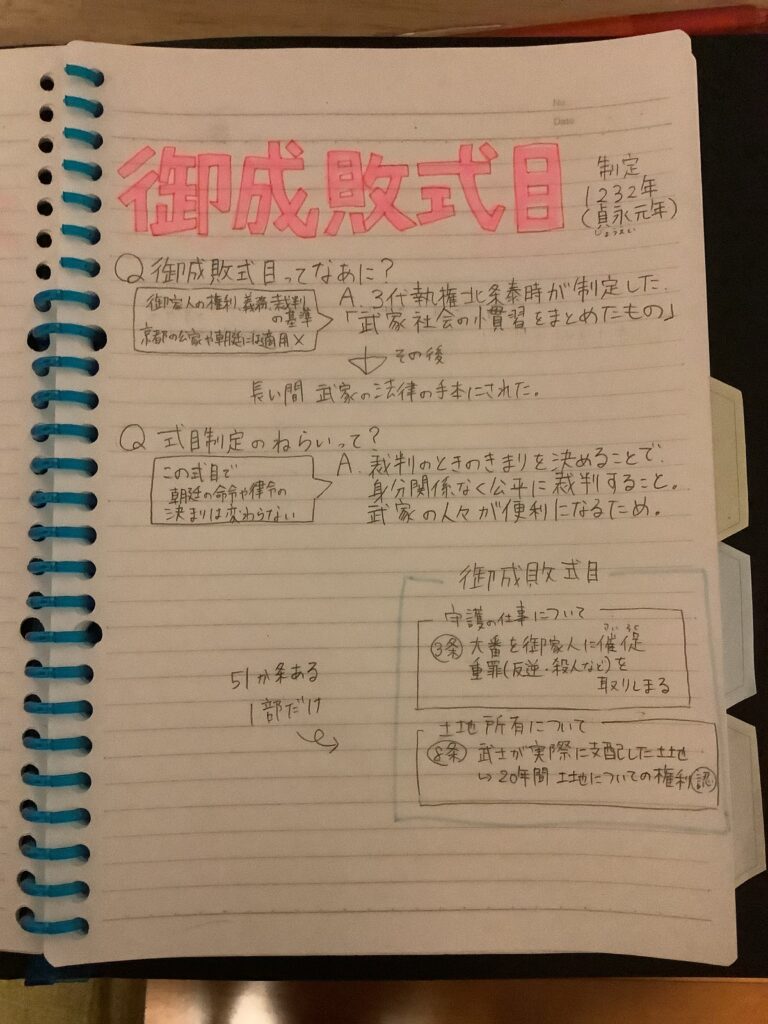 No.
Date
御成敗式目
制定
1232年
(貞永元年)
じょうえい
Q 御成敗式目ってなあに?
御家人の権利、義務、裁判
の基準
京都の公家や朝廷には適用×
A. 3代執権北条泰時が制定した、
「武家社会の慣習をまとめたもの」
その後
長い間 武家の法律の手本にされた。
Q 式目制定のねらいって?
この式目で
朝廷の命令や律令の
決まりは変わらない
A. 裁判のときのきまりを決めることで、
身分関係なく公平に裁判すること。
武家の人々が便利になるため。
51か条ある
1部だけ
御成敗式目
守護の仕事について
さいそく
3条 大番を御家人に催促
重罪(反逆・殺人など)を
取りしまる
土地所有について
8条 武士が実際に支配した土地
↳20年間 土地についての権利認